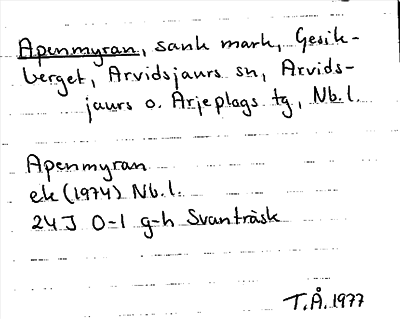 Apenmyran, sank mark, Gesik-
berget, Arvidsjaurs sn, Arvids-
jaurs o. Arjeplogs tg, Nb.l.
Apenmyran
ek (1974) Nb.l.
24J 0-1 g-h Svanträsk
T.Å. 1977